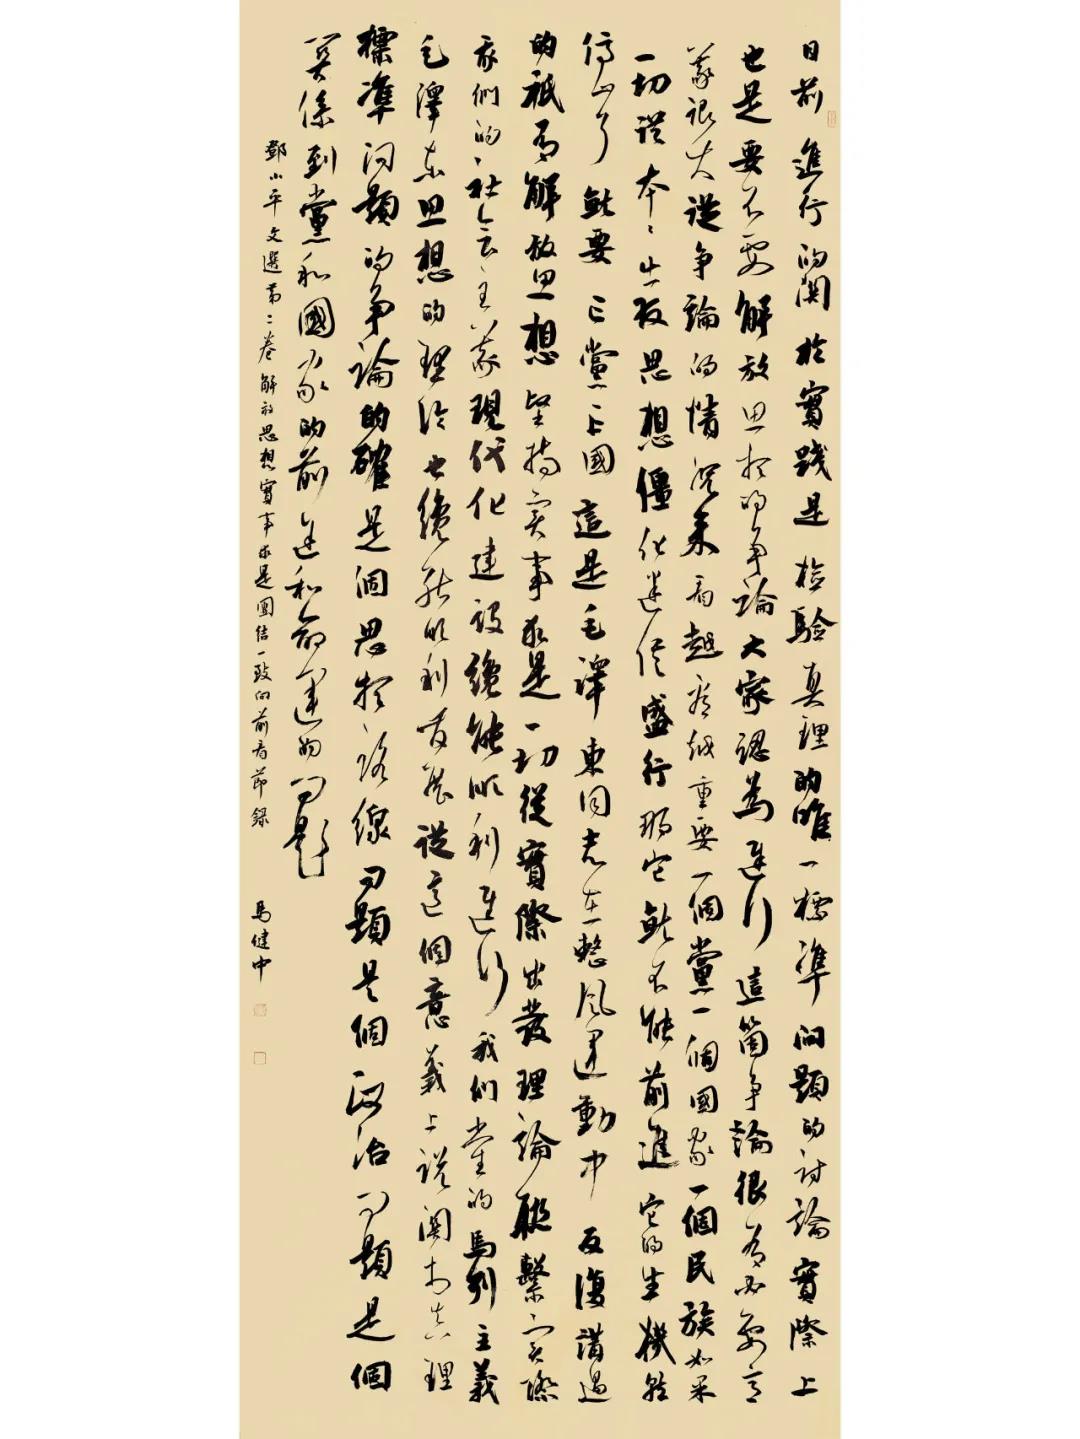 目前進行的關於實踐是檢驗真理的唯一標準問題的討論實際上
也是要不要解放思想的爭論大家認為進行這箇爭論很有必要意
義很大從爭論的情況來看越看越重要一個黨一個國家一個民族如果
一切從本本出發思想僵化迷信盛行那它就不能前進它的生機就
停止了就要亡黨亡國這是毛澤東同志在整風運動中反復講過
的祇有解放思想堅持實事求是一切從實際出發理論聯繫實際
我們的社會主義現代化建設纔能順利進行我們黨的馬列主義
毛澤東思想的理論也纔能順利發展從這個意義上說關於真理
標準問題的爭論的確是個思想路線問題是個政治問題是個
關係到黨和國家的前途和命運的問題
鄧小平文選第二卷解放思想實事求是團結一致向前看節錄 馬健中